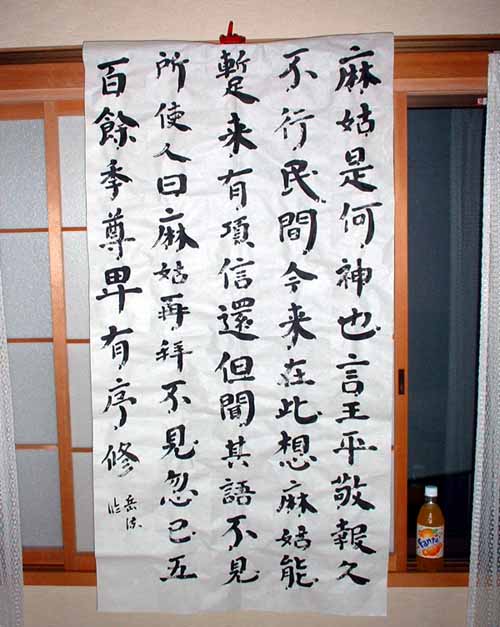 麻姑是何神也言王平敬報久
不行民間今来在此想麻姑能
蹔来有頃信還但聞其語不見
所使人曰麻姑再拜不見忽已五
百餘秊尊卑有序修
Fanta